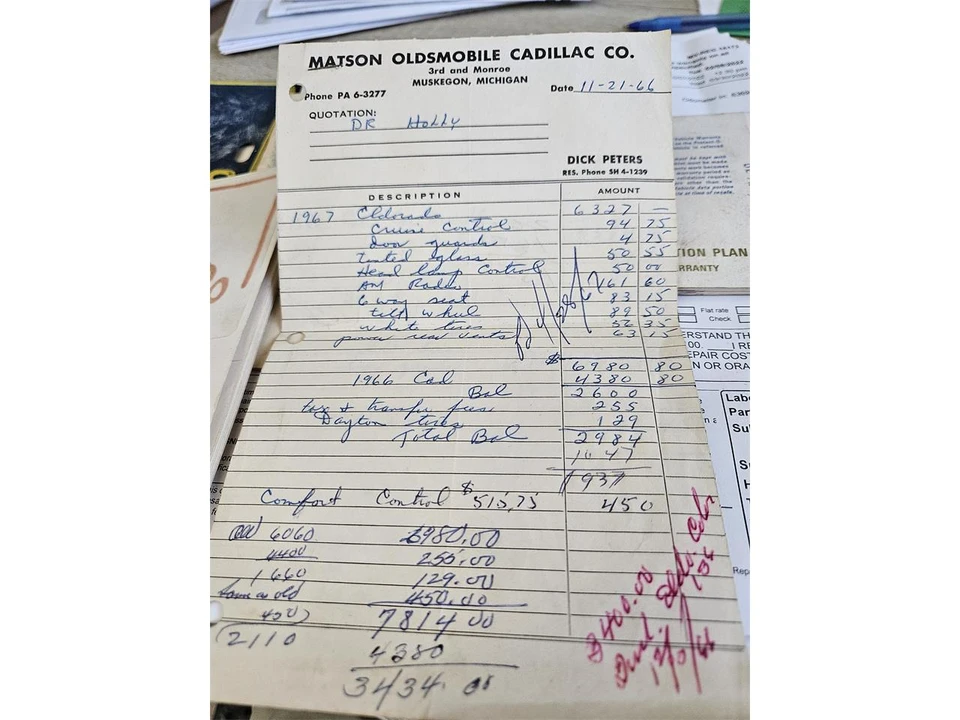 MATSON OLDSMOBILE CADILLAC CO.
3rd and Monroe
MUSKEGON, MICHIGAN
Phone PA 6-3277
Date 11-21-66
QUOTATION:
DR Holly
DICK PETERS
RES. Phone SH 4-1239
DESCRIPTION AMOUNT
1967 Eldorado 6327 —
Cruise Control 94 75
Door guards 4 75
Tinted glass 50 55
Head lamp Control 50 00
AM Radio 161 60
6 way seat 83 15
tilt wheel 89 50
white tires 52 35
power rear vents 63 15
$ 6980 80
1966 Cad 4380 80
Bal 2600
tax & transfer fees 255
Dayton tires 129
Total Bal 2984
1047
1937
Comfort Control $515,75 450
6060 6980.00
4400 255.00
1660 129.00
same as old 450.00
450) 7814 00
(2110 4380
3434.00
$400.00
Color
TION PLAN
RRANTY
Flat rate
Check
ERSTAND TH
00. I RE
EPAIR COST
N OR ORA
Labo
Par
Sul
Rep